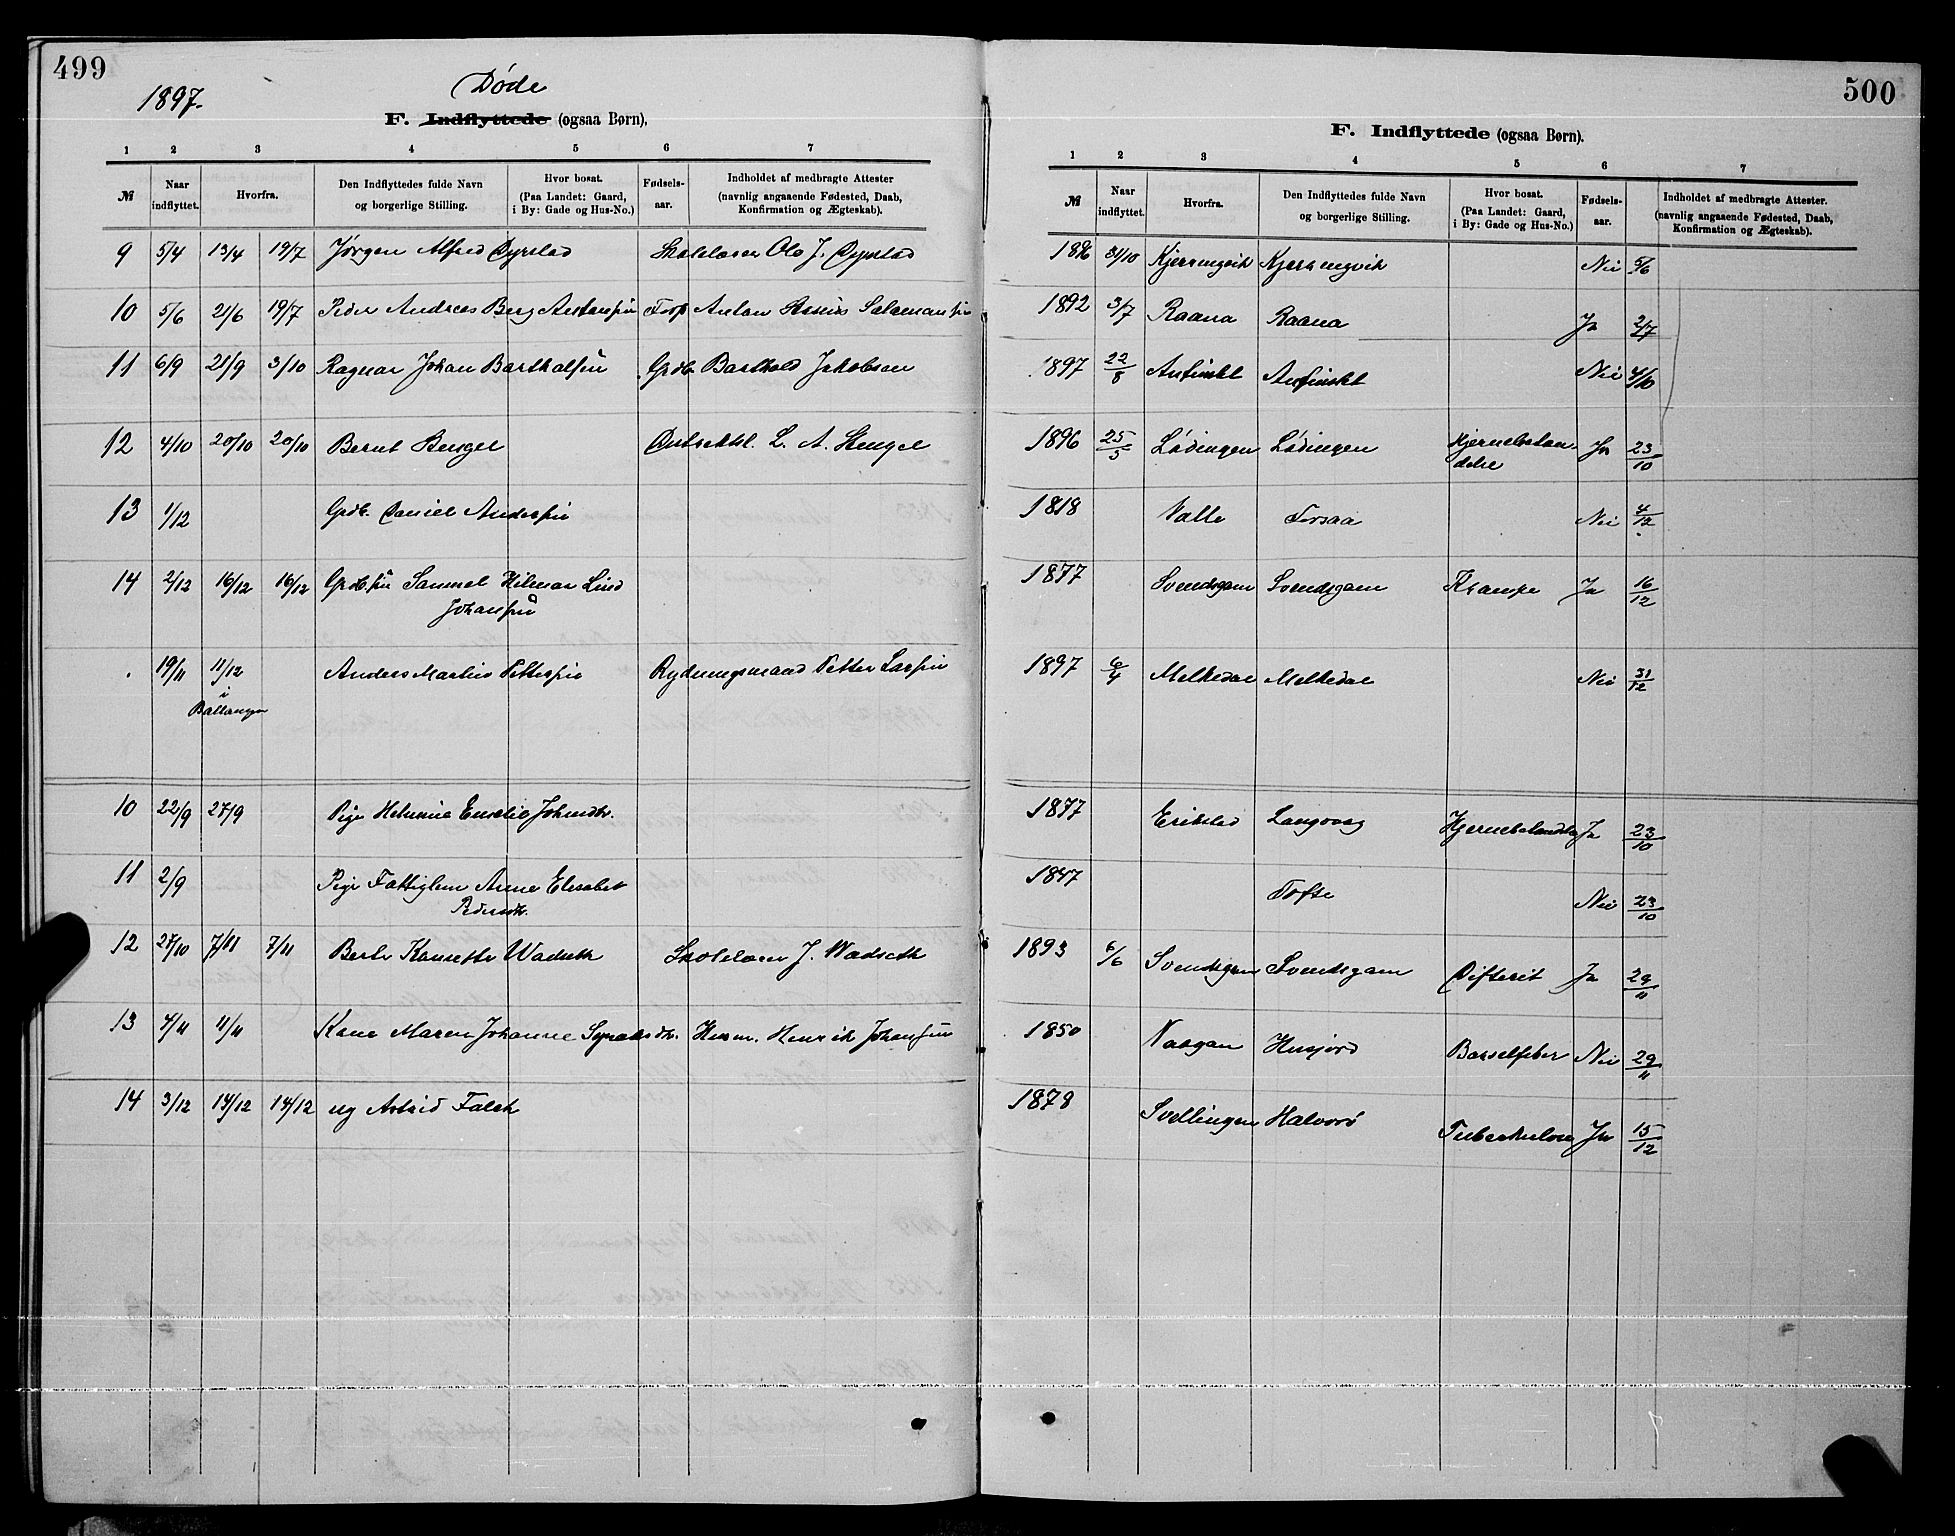 499
1897.
Døde
F. Indflyttede (ogsaa Børn),
1 2 3 4 5 6 7
№ Naar indflyttet. Hvorfra. Den Indflyttedes fulde Navn og borgerlige Stilling. Hvor bosat. (Paa Landet: Gaard, i By: Gade og Hus-No.) Fødsels-aar. Indholdet af medbragte Attester (navnlig angaaende Fødested, Daab, Konfirmation og Ægteskab).
9 5/4 13/4 19/7 Jørgen Alfred Dyrstad Skolelærer Ole J. Dyrstad
10 5/6 21/6 19/7 Peder Andreas Berg Antonsen Forp Anton
11 6/9 21/9 3/10 Ragnar Johan Bartholsen Grdb. Barthold Jakobsen
12 4/10 20/10 20/10 Bernt L. A.
13 1/12 Grdb. Daniel Andersen
14 2/12 16/12 16/12 Samuel Hilmar Lind
Johansen
19/11 11/12 Anders Martin Pettersen Rydningsmand Petter Larsen
i
Ballangen
10 22/9 27/9 Pige Emelie Johnsdtr.
11 2/9 Pige Fattiglem Anne Elisabet
Pedersdtr.
12 27/10 7/11 7/11 Wadseth Skolelærer J. Wadseth
13 4/11 11/11 Kone Maren Johanne Husm. Henrik Johansen
14 3/12 14/12 14/12 ug Astrid Falch
500
F. Indflyttede (ogsaa Børn).
1 2 3 4 5 6 7
№ Naar indflyttet. Hvorfra. Den Indflyttedes fulde Navn og borgerlige Stilling. Hvor bosat. (Paa Landet: Gaard, i By: Gade og Hus-No.) Fødsels-aar. Indholdet af medbragte Attester. (navnlig angaaende Fødested, Daab, Konfirmation og Ægteskab).
1896 31/10 Kjerringvik Kjerringvik Nei 5/6
1892 3/7 Raana Raana Ja 2/7
1897 22/8 Nei 4/10
1896 25/5 Lødingen Lødingen Ja 23/10
1818 Valle Forsaa Nei 4/12
1877 Svendsgam Svendsgam Krampe Ja 16/12
1897 6/4 Melkedal Melkedal Nei 31/12
1877 Erikstad Langvaag Ja 23/10
1847 Tofte Nei 23/10
1893 6/6 Svendsgam Svendsgam Difterit Ja 29/11
1850 Vaagan Husjord Barselfeber Nei 29/11
1878 Svellingen Halvorø Tuberkulose Ja 15/12